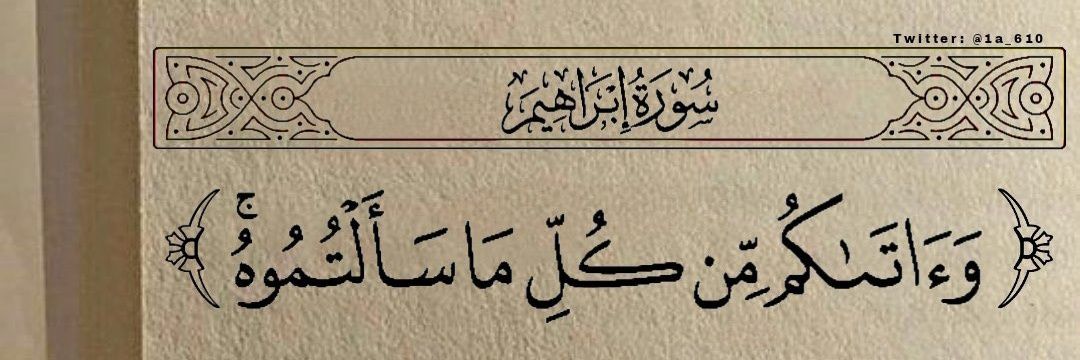 Twitter: @1a_610
سُورَةُ إِبْرَاهِيمَ
وَءَاتَىٰكُم مِّن كُلِّ مَا سَأَلْتُمُوهُ ۚ